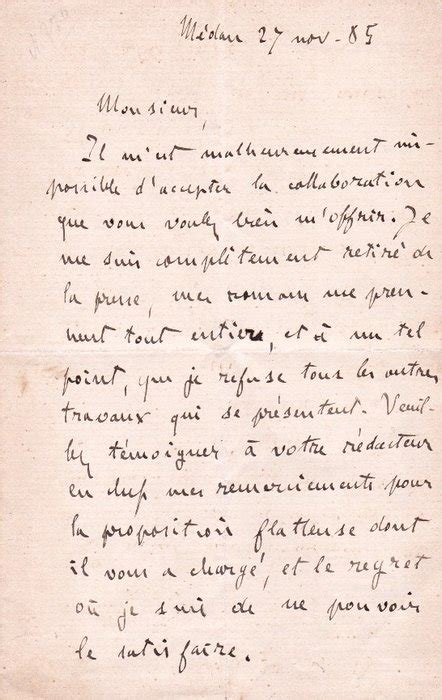 Médan 27 nov. 85
Monsieur,
Il m'est malheureusement im-
possible d'accepter la collaboration
que vous voulez bien m'offrir. Je
me suis complètement retiré de
la presse, mes romans me pren-
nent tout entier, et à un tel
point, que je refuse tous les autres
travaux qui se présentent. Veuil-
lez témoigner à votre rédacteur
en chef mes remerciements pour
la proposition flatteuse dont
il vous a chargé, et le regret
où je suis de ne pouvoir
le satisfaire.